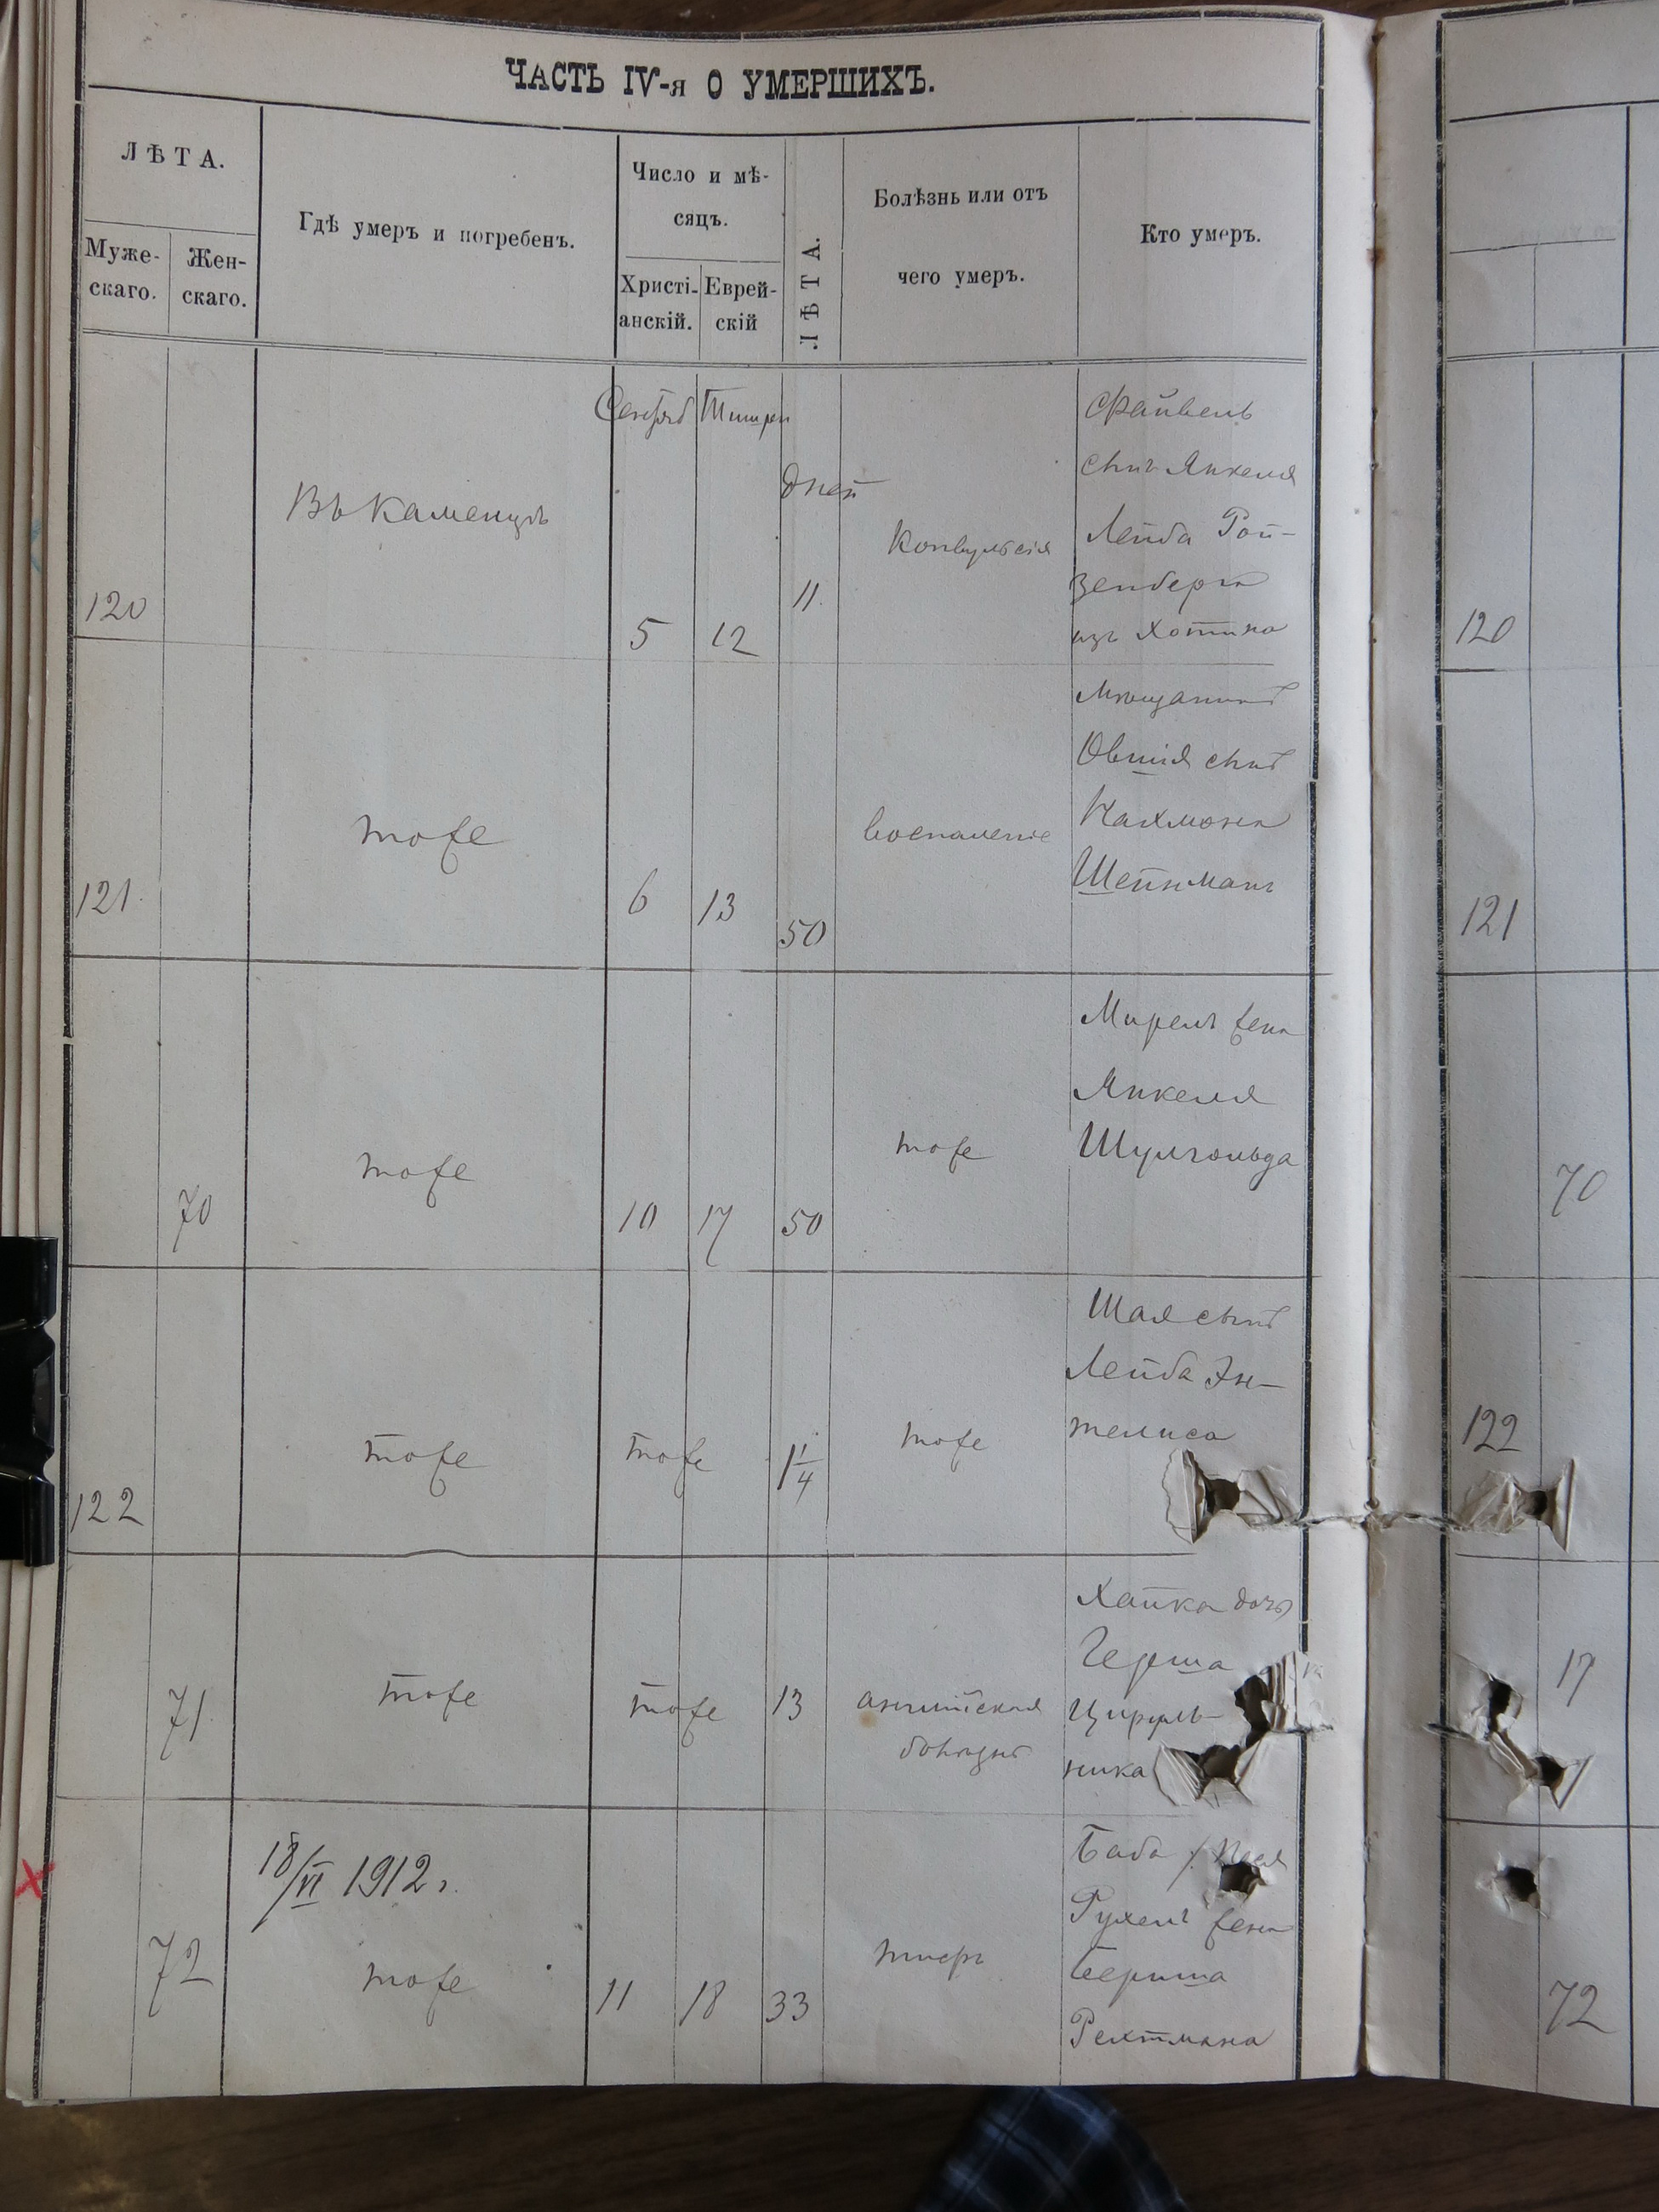 ЧАСТЬ IV-я О УМЕРШИХЪ.
ЛѢТА.
Муже-
скаго.
Жен-
скаго.
Гдѣ умеръ и погребенъ.
Число и мѣ-
сяцъ.
Христі-
анскій.
Еврей-
скій
ЛѢТА.
Болѣзнь или отъ
чего умеръ.
Кто умеръ.
120
Въ Каменцѣ
Сентяб
5
Тишри
12
дней
11
Конвульсія
Файвель
сынъ Янкеля
Лейба Рой-
зенберга
изъ Хотина
120
121.
тоже
6
13
50
воспаленіе
Мѣщанинъ
Овшія сынъ
Нахмона
Шейнманъ
121
70
тоже
10
17
50
тоже
Мирель жена
Янкеля
Шулгольда
70
122
тоже
тоже
1 1/4
тоже
Шая сынъ
Лейба Эн-
телиса
122
71
тоже
тоже
13
англійская
болѣзнь
Хайка дочь
Герша
Цируль-
ника
17
72
18/VI 1912 г.
тоже
11
18
33
тифъ
Баба
Рухель жена
Берша
Рехтмана
72